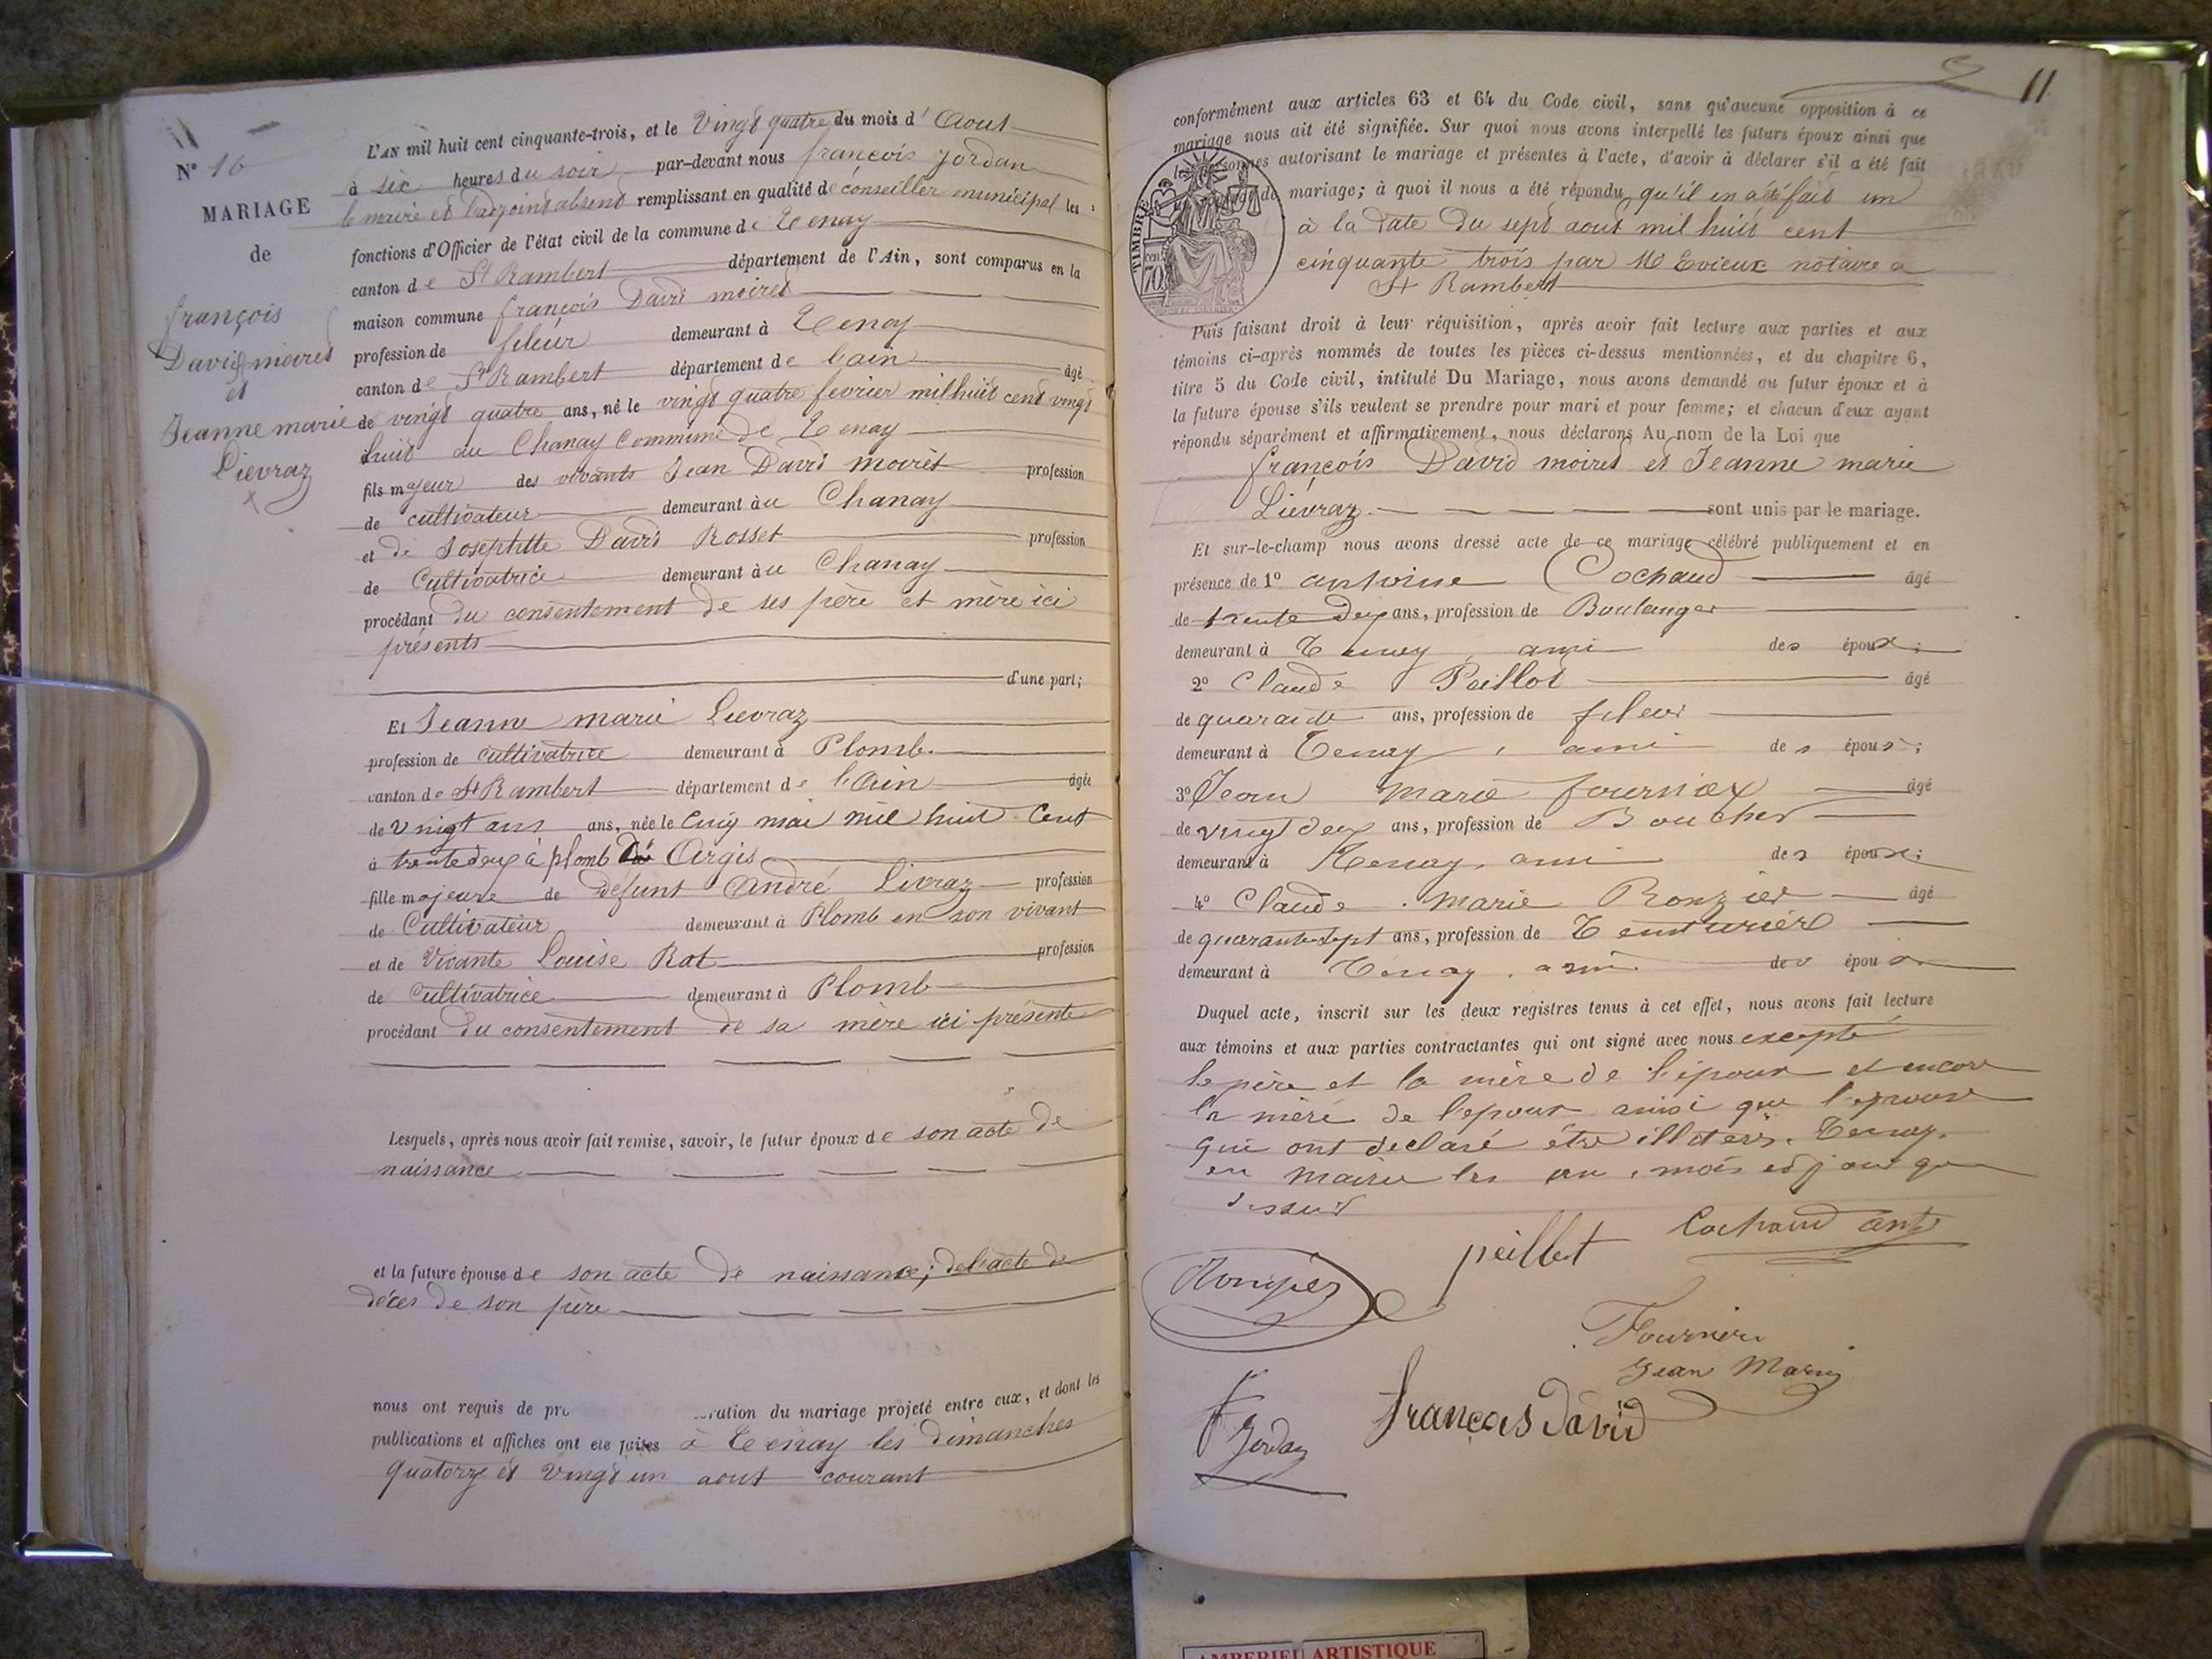 N° 16
MARIAGE
de
françois
David moiret
et
Jeanne marie
Lievraz
L'AN mil huit cent cinquante-trois, et le Vingt quatre du mois d'Aout
à six heures du soir par-devant nous françois Jordan
le maire et l'adjoint absent remplissant en qualité de conseiller municipal les
fonctions d'Officier de l'état civil de la commune de Tenay
canton de St Rambert département de l'Ain, sont comparus en la
maison commune françois David moiret
profession de fileur demeurant à Tenay
canton de St Rambert département de l'ain âgé
de vingt quatre ans, né le vingt quatre fevrier mil huit cent vingt
huit au Chanay Commune de Tenay
fils majeur des vivants Jean David moiret profession
de cultivateur demeurant au Chanay
et de Josephtte David Rosset profession
de Cultivatrice demeurant au Chanay
procédant du consentement de ses père et mère ici
présents
d'une part;
Et Jeanne marie Lievraz
profession de cultivatrice demeurant à Plomb
canton de St Rambert département de l'Ain âgée
de vingt ans ans, née le Cinq mai mil huit Cent
à trente deux à plomb Argis
fille majeure de défunt André Livraz profession
de Cultivateur demeurant à Plomb en son vivant
et de Vivante Louise Rat profession
de Cultivatrice demeurant à Plomb
procédant du consentement de sa mère ici présente
Lesquels, après nous avoir fait remise, savoir, le futur époux de son acte de
naissance
et la future épouse de son acte de naissance; de l'acte de
décès de son père
nous ont requis de pro ration du mariage projeté entre eux, et dont les
publications et affiches ont été faites à Tenay les dimanches
quatorze et vingt un aout courant
11
conformément aux articles 63 et 64 du Code civil, sans qu'aucune opposition à ce
mariage nous ait été signifiée. Sur quoi nous avons interpellé les futurs époux ainsi que
les personnes autorisant le mariage et présentes à l'acte, d'avoir à déclarer s'il a été fait
de mariage; à quoi il nous a été répondu qu'il en a été fait un
TIMBRE
70
à la date du sept aout mil huit cent
cinquante trois par Me Evieux notaire a
St Rambert
Puis faisant droit à leur réquisition, après avoir fait lecture aux parties et aux
témoins ci-après nommés de toutes les pièces ci-dessus mentionnées, et du chapitre 6,
titre 5 du Code civil, intitulé Du Mariage, nous avons demandé au futur époux et à
la future épouse s'ils veulent se prendre pour mari et pour femme; et chacun d'eux ayant
répondu séparément et affirmativement, nous déclarons Au nom de la Loi que
françois David moiret et Jeanne marie
Liévraz sont unis par le mariage.
Et sur-le-champ nous avons dressé acte de ce mariage célébré publiquement et en
présence de 1° antoine Cochaud âgé
de trente deux ans, profession de Boulanger
demeurant à Tenay ami des époux;
2° Claude Peillot âgé
de quarante ans, profession de fileur
demeurant à Tenay, ami des époux;
3° Jean Marie fournier âgé
de vingt deux ans, profession de Boucher
demeurant à Tenay, ami des époux;
4° Claude Marie Ronzier âgé
de quarante sept ans, profession de Teinturier
demeurant à Tenay, ami des époux
Duquel acte, inscrit sur les deux registres tenus à cet effet, nous avons fait lecture
aux témoins et aux parties contractantes qui ont signé avec nous excepté
le père et la mère de l'époux et encore
la mère de l'epoux ainsi que l'epouse
qui ont declaré être illiters. Tenay.
en mairie les an, mois et jour que
dessus
peillot
Cochaud ante
Ronzier
Fournier
Jean Marie
F Jordan
francois david
AMBERIEU ARTISTIQUE